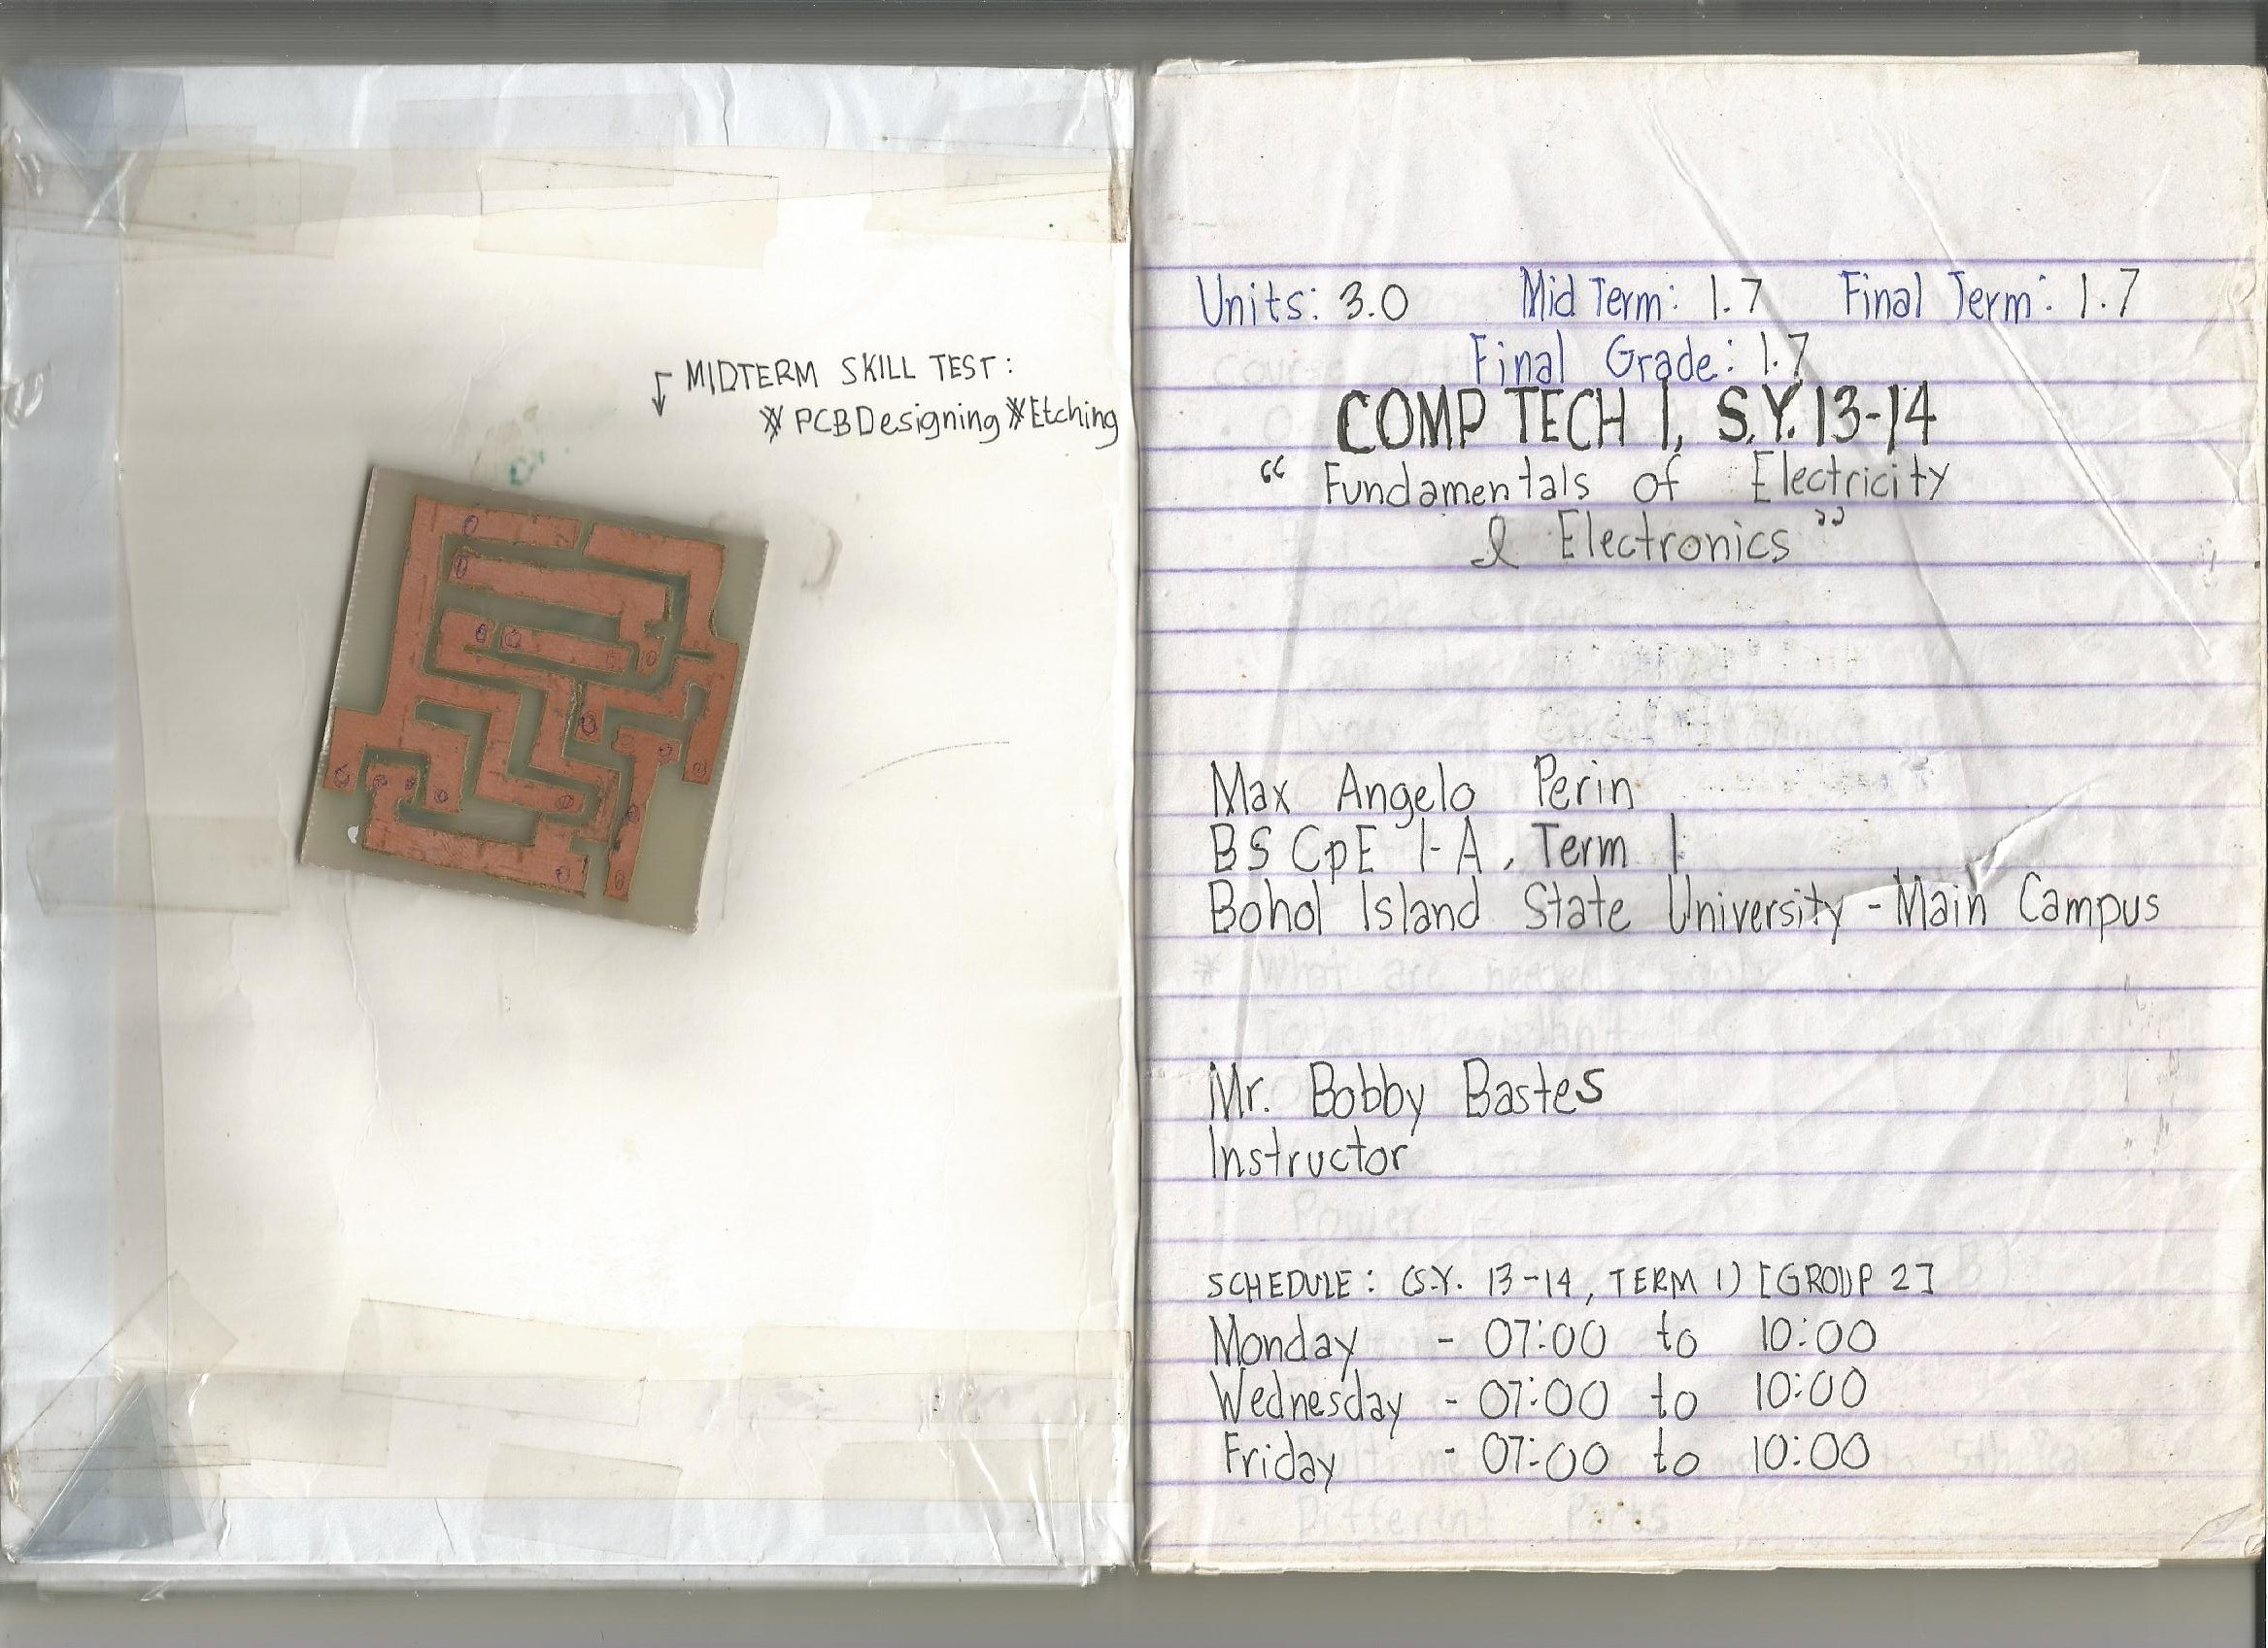 MIDTERM SKILL TEST:
* PCB Designing * Etching
Units: 3.0 Mid Term: 1.7 Final Term: 1.7
Final Grade: 1.7
COMP TECH 1, S.Y. 13-14
“ Fundamentals of Electricity
& Electronics ”
Max Angelo Perin
BS CpE 1-A, Term 1
Bohol Island State University - Main Campus
Mr. Bobby Bastes
Instructor
SCHEDULE: (S.Y. 13-14, TERM 1) [GROUP 2]
Monday - 07:00 to 10:00
Wednesday - 07:00 to 10:00
Friday - 07:00 to 10:00